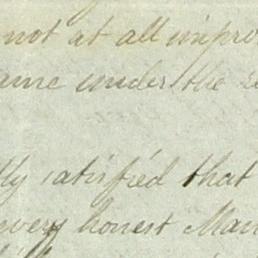 not at all impro
ame under the
ly satisfied that
every honest Man